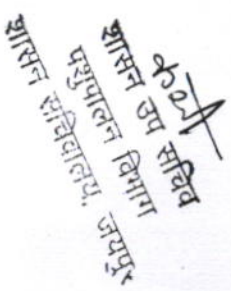 शासन उप सचिव
पशुपालन विभाग
शासन सचिवालय, जयपुर